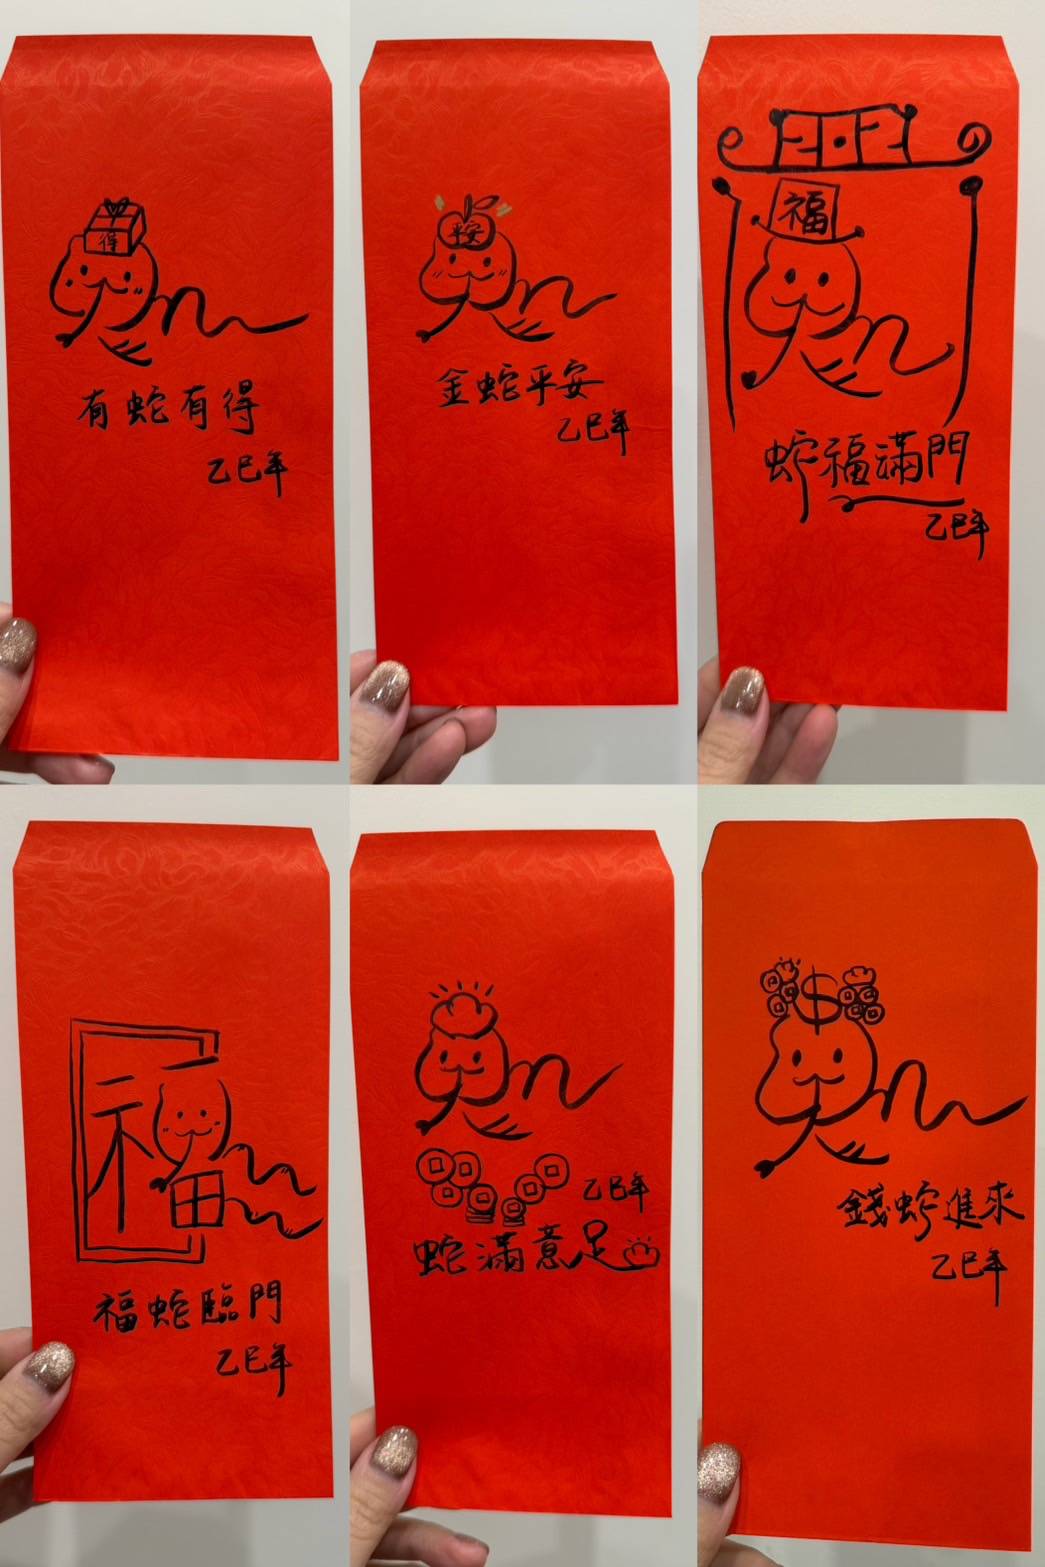 得
有蛇有得
乙巳年
平安
金蛇平安
乙巳年
福
蛇福滿門
乙巳年
福
福蛇臨門
乙巳年
乙巳年
蛇滿意足
$
錢蛇進來
乙巳年